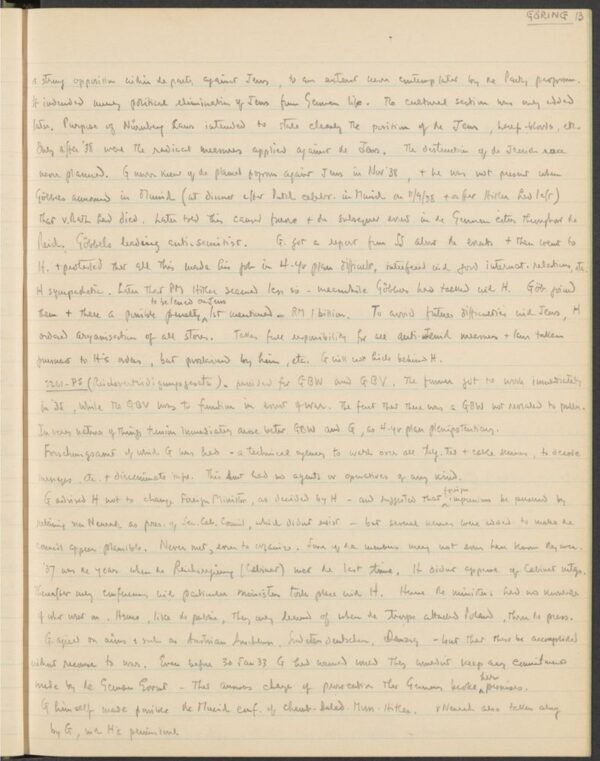 GÖRING 13
a strong opposition within the party against Jews, to an extent never contemplated by the Party program.
It intended merely political elimination of Jews from German life. The cultural section was only added
later. Purpose of Nürnberg Laws intended to state clearly the position of the Jews, half-bloods, etc.
Only after '38 were the radical measures applied against the Jews. The destruction of the Jewish race
never planned. G never knew of the planned pogrom against Jews in Nov '38, + he was not present when
Göbbels announced in Munich (at dinner after Putsch celebr. in Munich on 11/9/38 + after Hitler had left)
that v. Rath had died. Later told this caused furore + the subsequent events in the German cities throughout the
Reich. Göbbels leading anti-semitist. G. got a report from SS about the events + then went to
H. + protested that all this made his job in 4-yr plan difficult, interfered with good internat. relations, etc.
H sympathetic. Later that PM Hitler seemed less so - meanwhile Göbbels had talked with H. Göb joined
them + there a possible penalty to be levied on Jews 1st mentioned - RM 1 billion. To avoid future difficulties with Jews, H
ordered aryanisation of all stores. Takes full responsibility for all anti-Jewish measures + laws taken
pursuant to H's orders, but proclaimed by him, etc. G will not hide behind H.
2261-PS (Reichsverteidigungsgesetz). provided for GBW and GBV. The former got to work immediately
in '35, while the GBV was to function in event of war. The fact that there was a GBW not revealed to public.
In very nature of things tension immediately arose between GBW and G, as 4-yr plan plenipotentiary.
Forschungsamt of which G was head - a technical agency to watch over all tlg, tel + cable news, to decode
messages, etc. + disseminate info. This Amt had no agents or operatives of any kind.
G advised H not to change Foreign Minister, as decided by H - and suggested that foreign impression be preserved by
retaining von Neurath as pres. of Sec. Cab. Council, which didn't exist - but several names were added to make the
council appear plausible. Never met, even to organize. Some of the members may not even have known they were.
'37 was the year when the Reichsregierung (Cabinet) met the last time. H didn't approve of Cabinet mtgs.
Thereafter only conferences with particular ministers took place with H. Hence the ministers had no knowledge
of what went on. Hence, like the public, they only learned of when the troops attacked Poland, thru the press.
G agreed on aims such as Austrian Anschluss, Sudetendeutschen, Danzig - but that these be accomplished
without recourse to war. Even before 30 Jan 33 G had warned world they wouldn't keep any commitments
made by the German Govmt - That answers charge of prosecution that Germans broke her promises.
G himself made possible the Munich conf. of Chamb-Dalad-Muss-Hitler. v Neurath also taken along
by G, with H's permission.